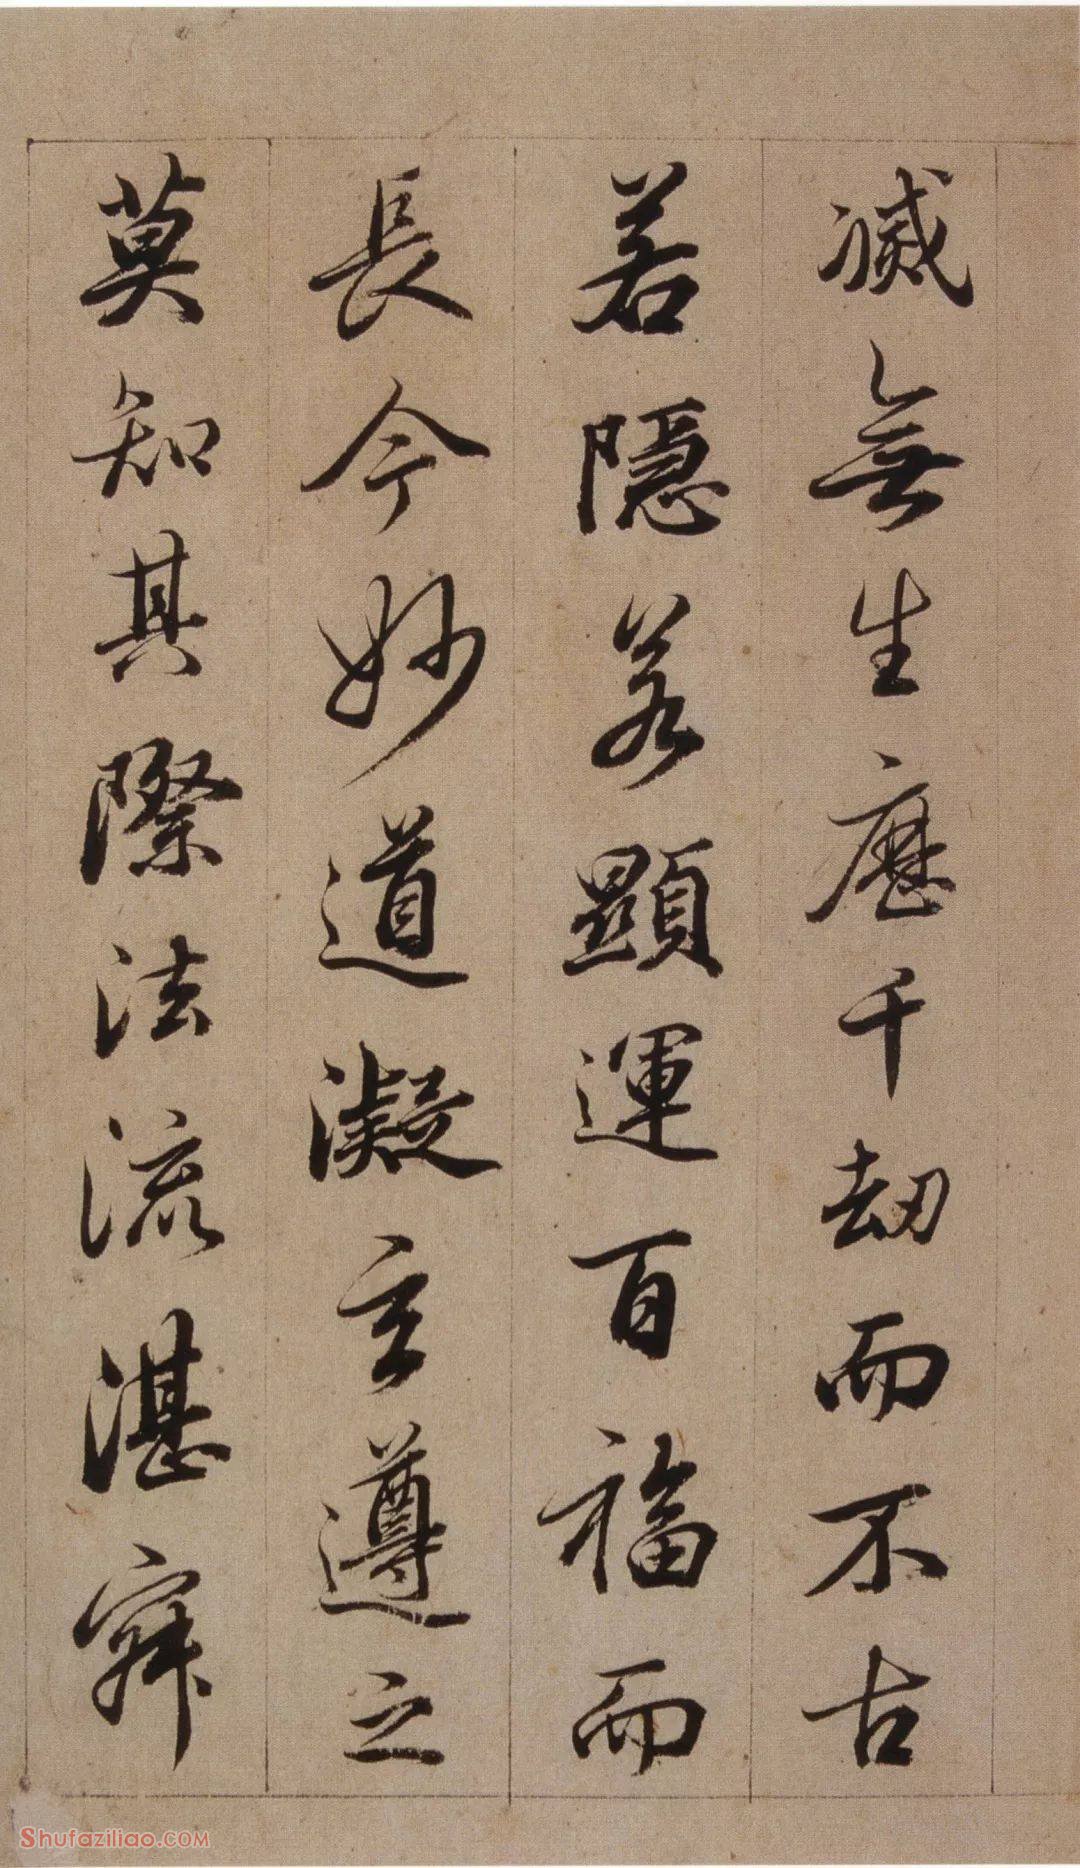 滅無生歷千劫而不古
若隱若顯運百福而
長今妙道凝玄遵之
莫知其際法流湛寂
Shufaziliao.COM